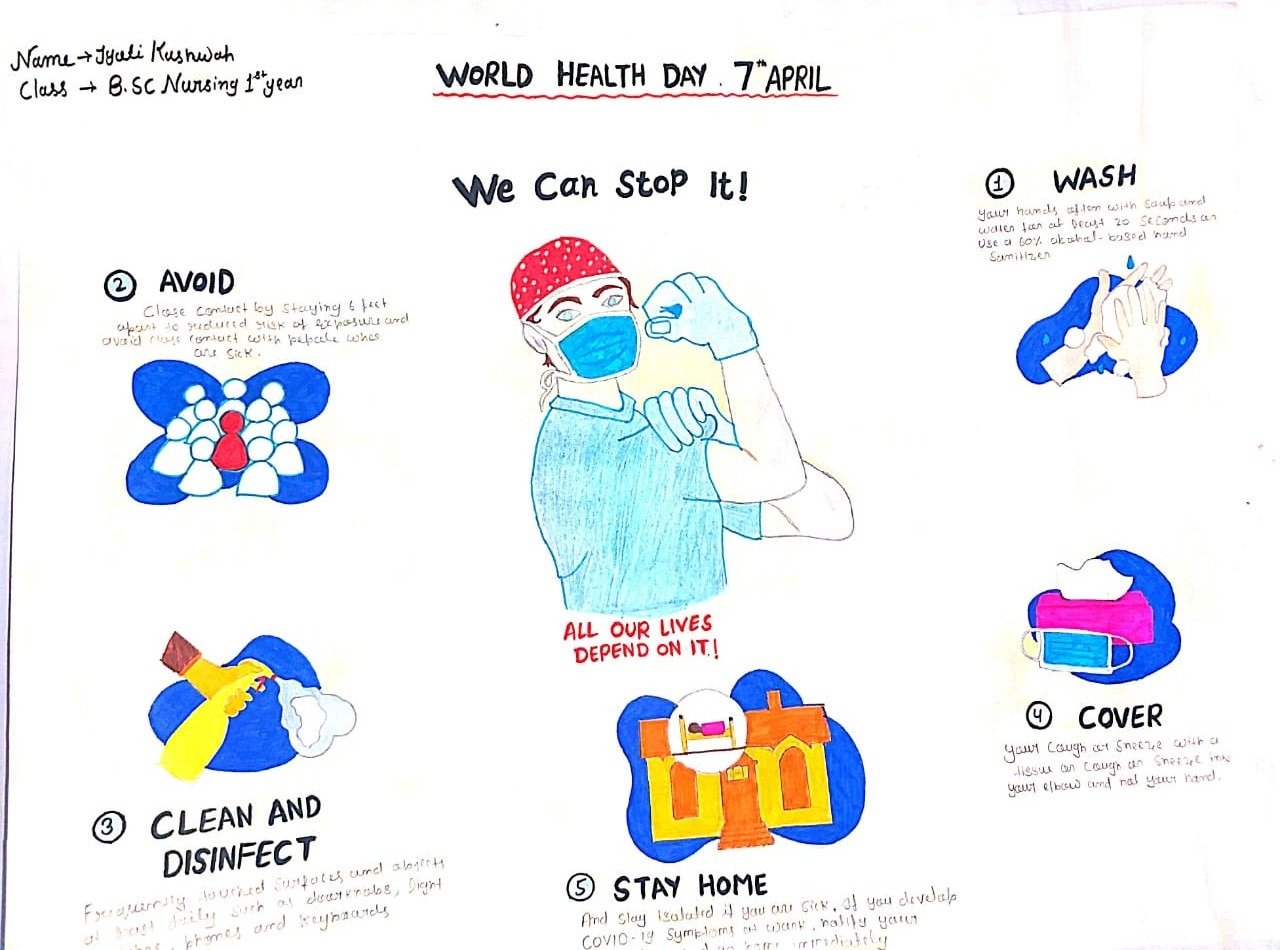 Name → Jyoti Kushwah
Class → B.SC Nursing 1st year
WORLD HEALTH DAY . 7th APRIL
We Can Stop It!
① WASH
Your hands often with Soap and
water for at least 20 Seconds or
Use a 60% alcohol-based hand
Sanitizer
② AVOID
Close contact by Staying 6 feet
apart to reduced risk of exposure and
avoid close contact with
are Sick.
ALL OUR LIVES
DEPEND ON IT!
③ CLEAN AND
DISINFECT
Frequently touched Surfaces and objects
at least daily such as doorknobs, light
phones and Keyboards
④ COVER
Your Cough or Sneeze with a
tissue or Cough or Sneeze into
your elbow and not your hand.
⑤ STAY HOME
And Stay Isolated if you are Sick, If you develop
COVID-19 Symptoms at work, notify your
immediately